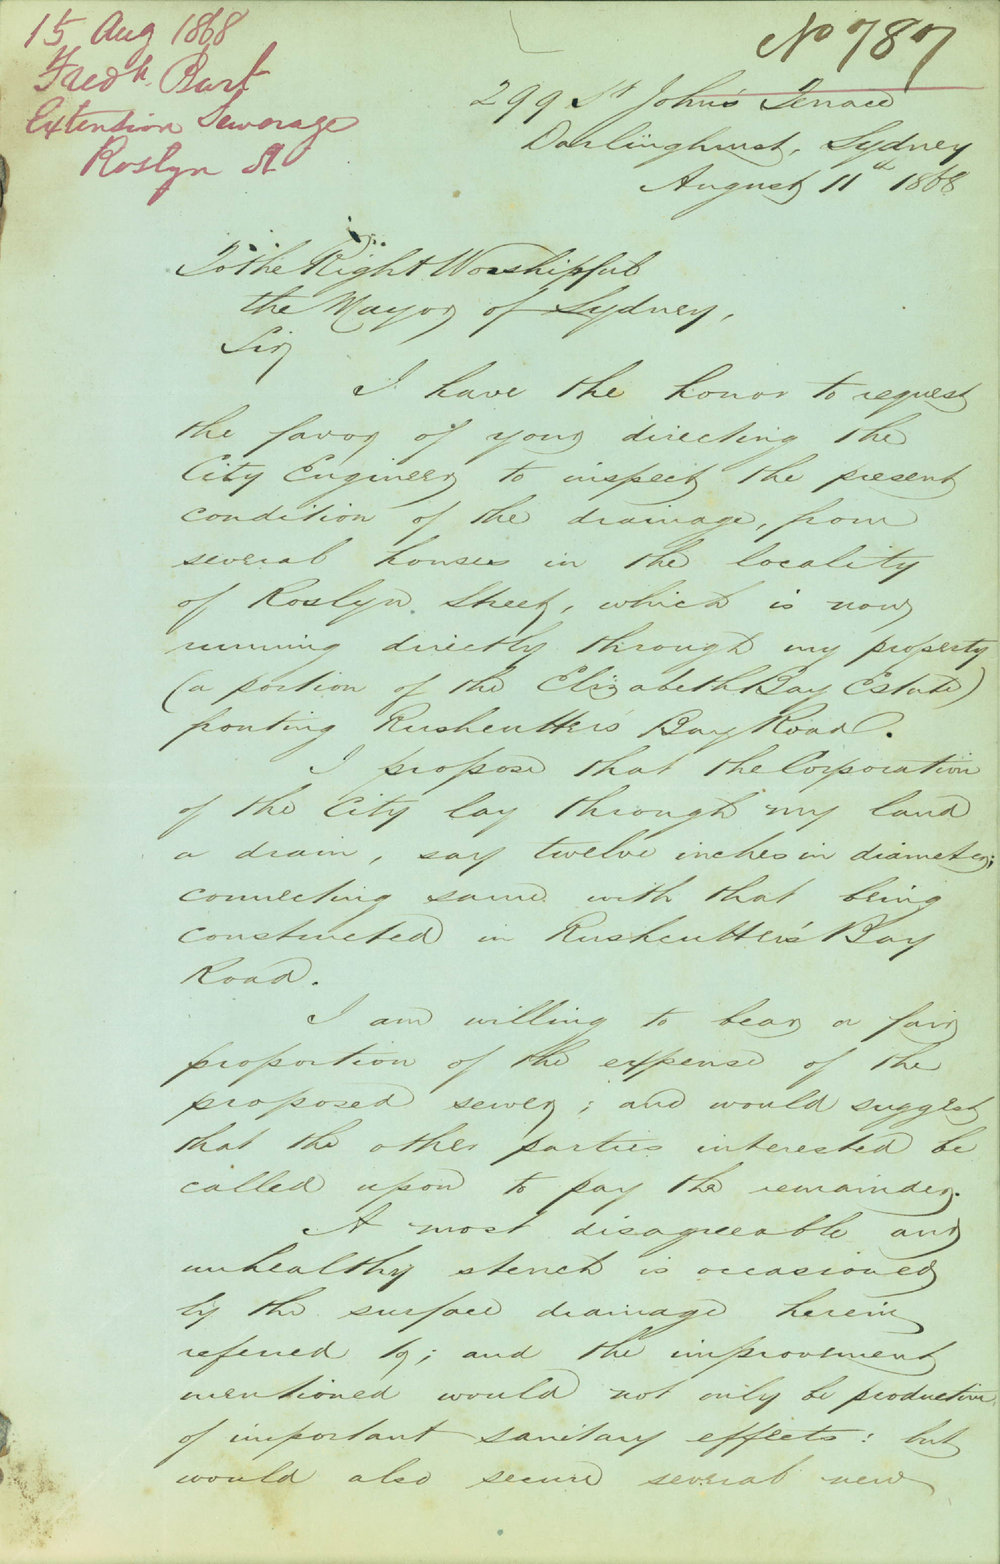 15 Aug 1868
Fredk. Burt
Extension Sewerage
Roslyn St
No 787
299 St John's Terrace
Darlinghurst, Sydney
August 11th 1868
To the Right Worshipful
the Mayor of Sydney,
Sir
I have the honor to request
the favor of your directing the
City Engineer to inspect the present
condition of the drainage, from
several houses in the locality
of Roslyn Street, which is now
running directly through my property
(a portion of the Elizabeth Bay Estate)
fronting Rushcutter's Bay Road.
I propose that the Corporation
of the City lay through my land
a drain, say twelve inches in diameter;
connecting same with that being
constructed in Rushcutter's Bay
Road.
I am willing to bear a fair
proportion of the expense of the
proposed sewer; and would suggest
that the other parties interested be
called upon to pay the remainder.
A most disagreeable and
unhealthy stench is occasioned
by the surface drainage herein
referred to; and the improvement
mentioned would not only be productive
of important sanitary effects: but
would also secure several new